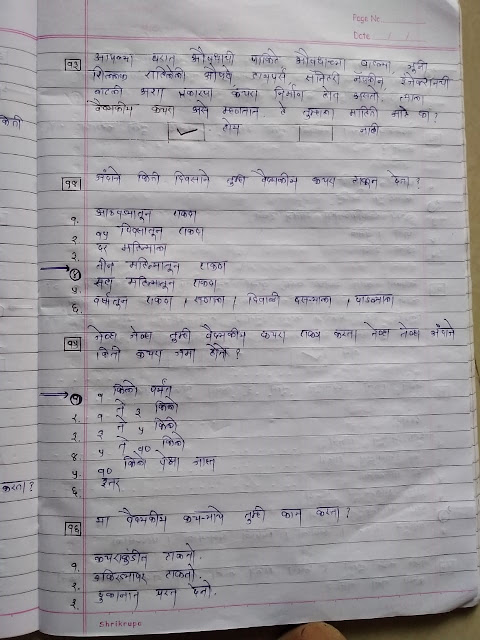 Page No
Date / /
१३ आपल्या घरात औषधाची पाकिटे औषधाच्या बाटल्या जुनी
शिल्लक राहिलेली औषधे डायपर्स, सॅनिटरी नॅपकीन, इंजेक्शनची
बाटली अशा प्रकारचा कचरा निर्माण होत असतो, त्याला
वैद्यकीय कचरा असे म्हणतात हे तुम्हाला माहिती आहे का?
✓ होय नाही
१४ अंदाजे किती दिवसाने तुम्ही वैद्यकीय कचरा टाकून देता?
१. आठवड्यातून एकदा
२ १५ दिवसातून एकदा
३. दर महिन्याला
→ ४ तीन महिन्यातून एकदा
५ सहा महिन्यातून एकदा
६. वर्षातून एकदा, सणाला, दिवाळी दसऱ्याला, पाडव्याला
१५ जेव्हा जेव्हा तुम्ही वैद्यकीय कचरा एकत्र करता तेव्हा तेव्हा अंदाजे
किती कचरा जमा होतो?
→ १ १ किलो पर्यंत
२. १ ते २ किलो
३. २ ते ५ किलो
४. ५ ते १० किलो
५. १० किलो पेक्षा जास्त
६. इतर
करता?
१६ या वैद्यकीय कचऱ्याचे तुम्ही काय करता?
१. कचराकुंडीत टाकतो.
२. उकिरड्यावर टाकतो.
३. दुकानात परत देतो.
Shrikrupa